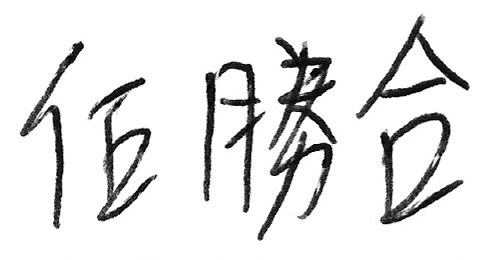 伍勝合